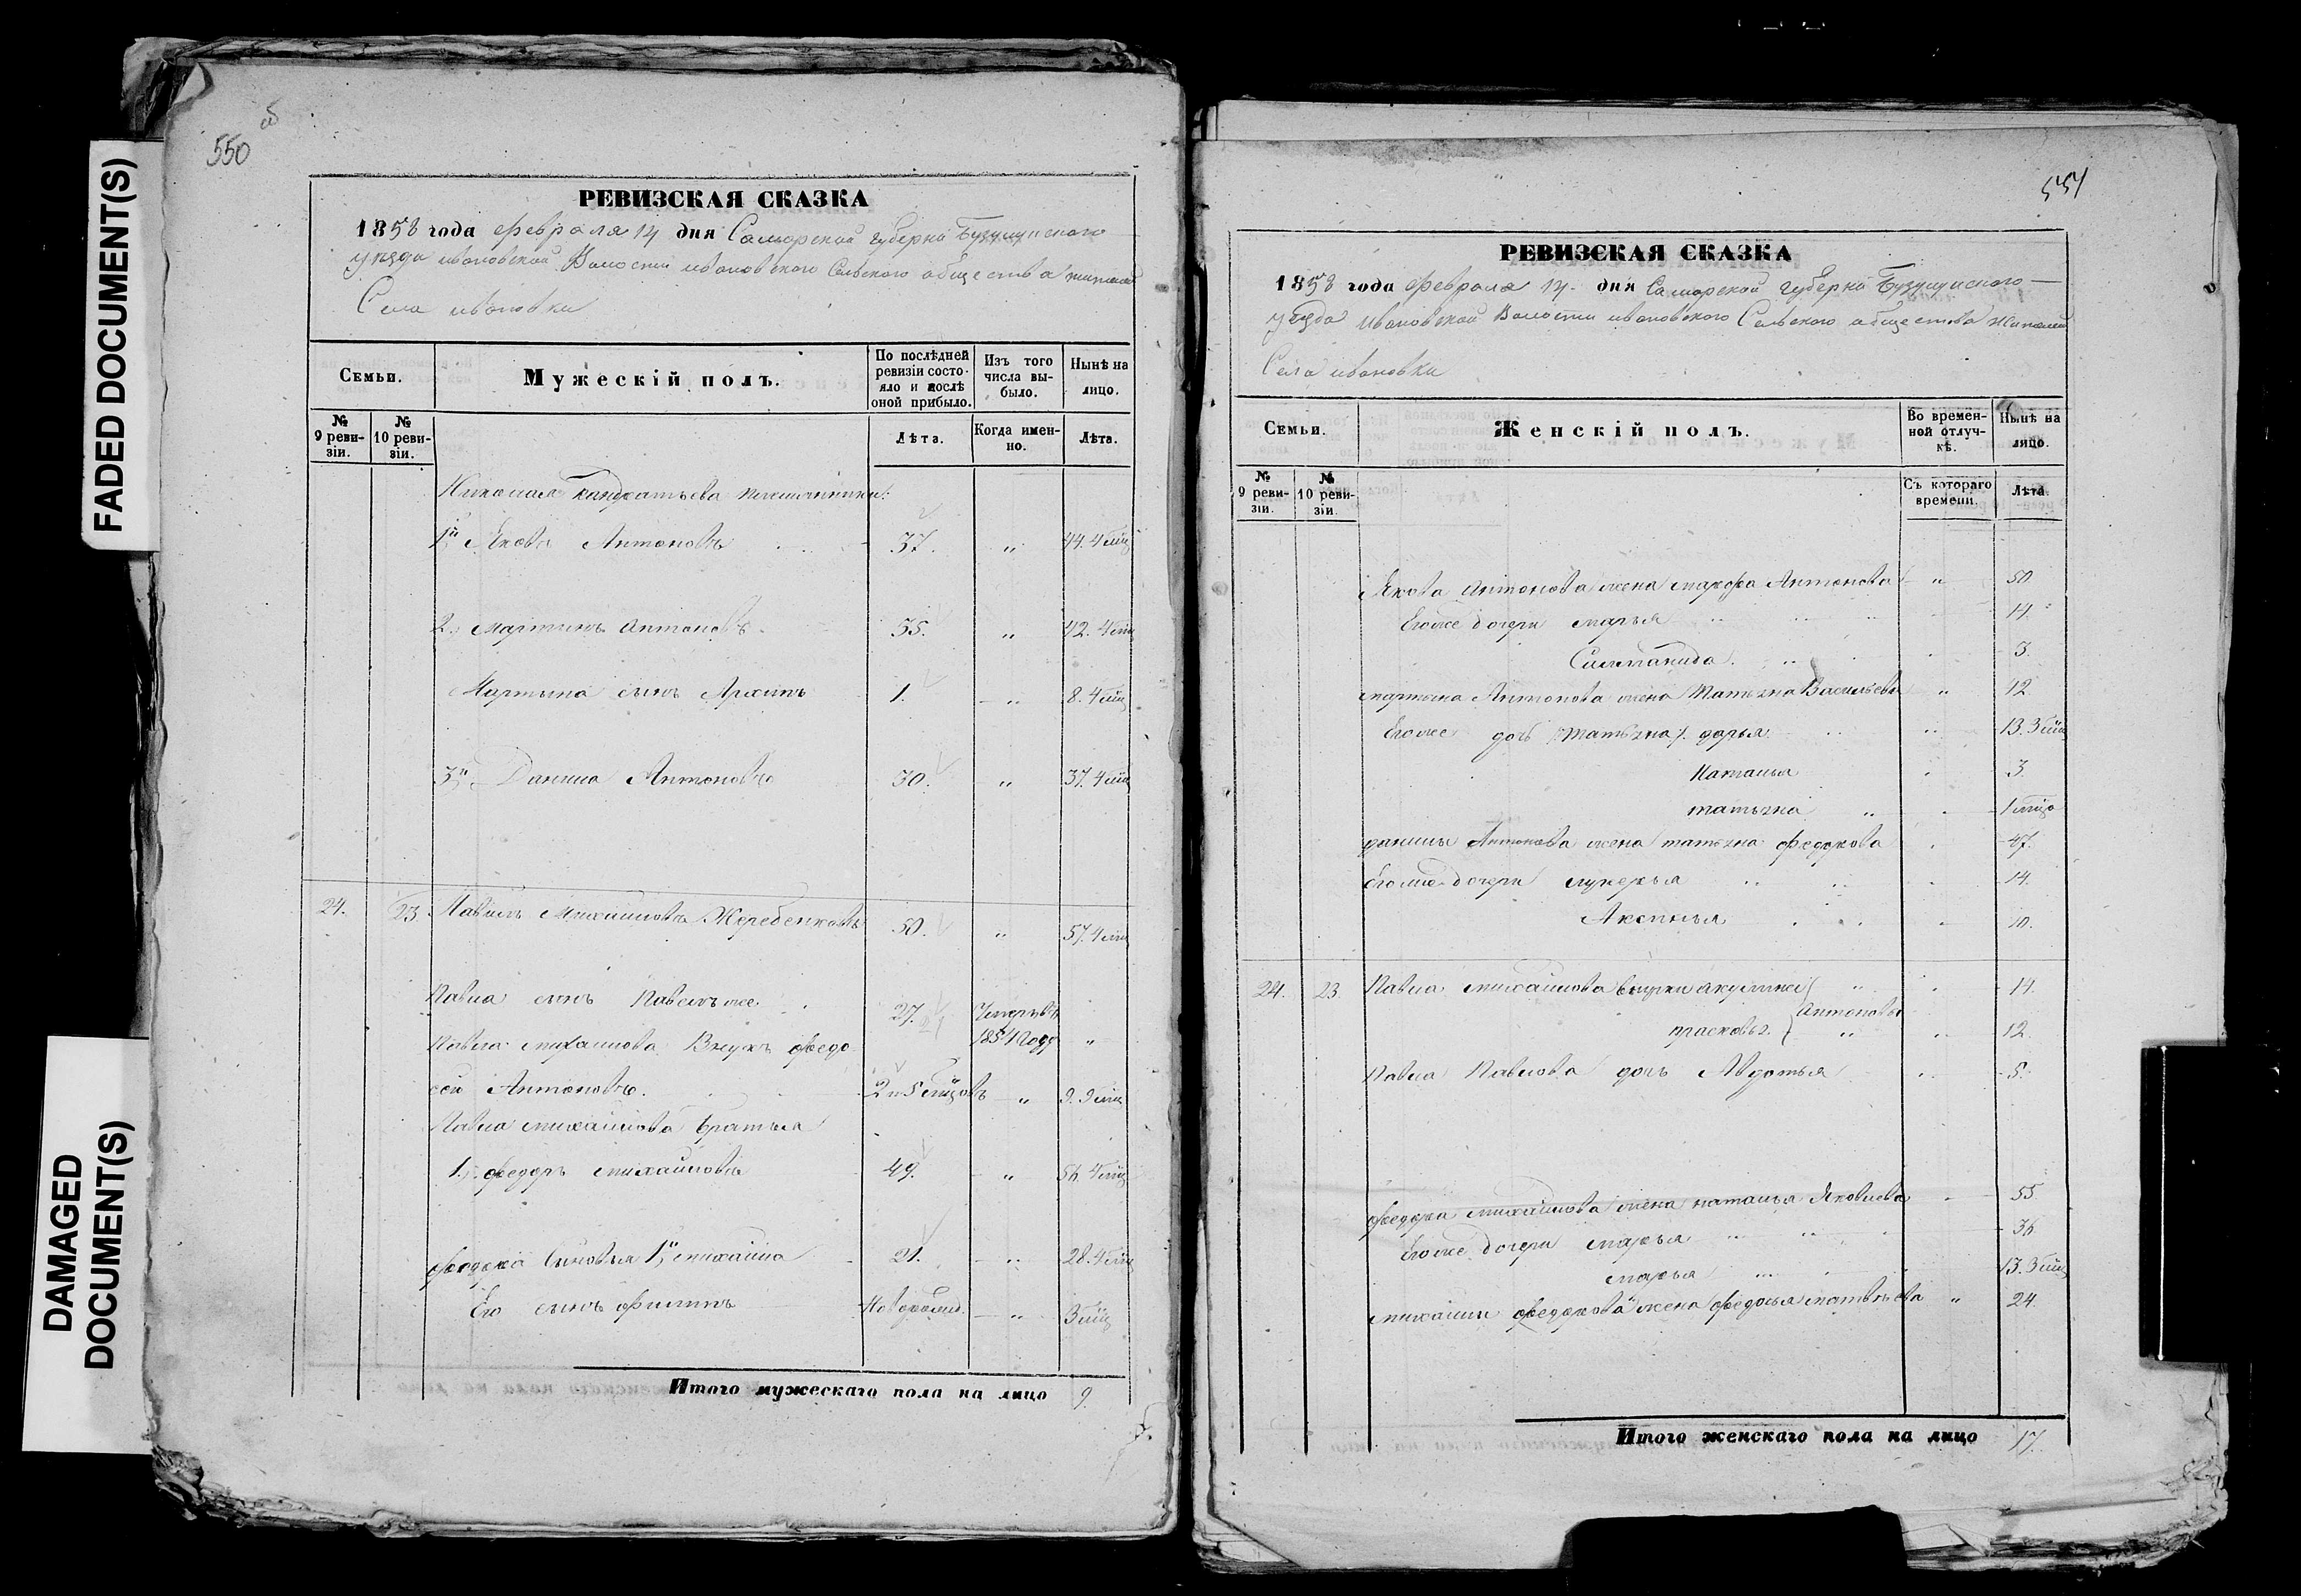 FADED DOCUMENT(S)
DAMAGED
DOCUMENT(S)
550
об
РЕВИЗСКАЯ СКАЗКА
1858 года февраля 14 дня Самарской губерни Бузулуиского
уезда ивановской Волости ивановского Сельского общества жителей
Села ивановки
Семьи.
Мужескій полъ.
По послѣдней
ревизіи состо-
яло и послѣ
оной прибыло.
Изъ того
числа вы-
было.
Нынѣ на
лицо.
№
9 реви-
зіи.
№
10 реви-
зіи.
Лѣта.
Когда имен-
но.
Лѣта.
Николая Кандратьева племянники:
1й Яковъ Антоновъ 37. " 44. 4 мѣц
2й мартинъ Антоновъ. 35. " 42. 4 мѣц
Мартина сынъ Архипъ 1. " 8. 4 мѣц
3й Данила Антоновъ 30. " 37. 4 мѣц
24. 23 Павилъ михайловъ Жеребенковъ 50. " 57. 4 мѣц
Павла сынъ Павелъ же. 27.
1854 году "
Павла михаилова Внукъ федо
сеи Антоновъ. 2 и 5 мѣцовъ " 9. 9 мѣц
Павла михайлова братья
1й федоръ михайловъ 49. " 56. 4 мѣц
федора сыновья 1й михаила 21. " 28. 4 мѣц
Его сынъ филипъ Новорожд. " 3 мѣц
Итого мужескаго пола на лицо 9
551
РЕВИЗСКАЯ СКАЗКА
1858 года февраля 14 дня Самарской губерни Бузулуиского
уезда ивановской Волости ивановского Сельского общества жителей
Села ивановки
Семьи.
Женскій полъ.
Во времен-
ной отлуч-
кѣ.
Нынѣ на
лицо.
№
9 реви-
зіи.
№
10 реви-
зіи.
Съ котораго
времени.
Лѣта.
Якова Антонова жена марфа Антонова " 50
Его же дочери марья " 14
Силитанида. " 3.
мартина Антонова жена Татьяна Васильева " 42.
Его же дочь татьяна дарья " 13. 3 мѣц
Наталья " 3
татьяна " 1 мѣца
данилы Антонова жена татьяна федорова 47.
Его же дочери лукерья " 14.
Аксинья 10.
24. 23. Павла михаилова внучки акулина " 14.
Антоновы
прасковья. " 12
Павла Павлова дочь Авдотья " 5.
федора михайлова жена наталья Яковлева 55
Его же дочери марья " 36
марья " 13. 3 мѣц
михаилы федорова жена федосья матвѣева " 24.
Итого женскаго пола на лицо 17.